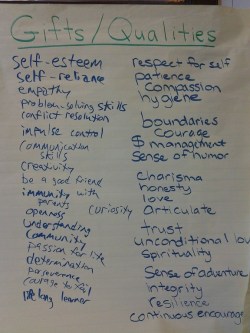 Gifts/Qualities
self-esteem
self-reliance
empathy
problem-solving skills
conflict resolution
impulse control
communication
skills
creativity
be a good friend
immunity with
parents
openness
curiosity
understanding
community
passion for life
determination
perserverence
courage to fail
life long learner
respect for self
patience
compassion
hygiene
boundaries
courage
$ management
sense of humor
charisma
honesty
love
articulate
trust
unconditional lo
spirituality
sense of adventure
integrity
resilience
continuous encourag